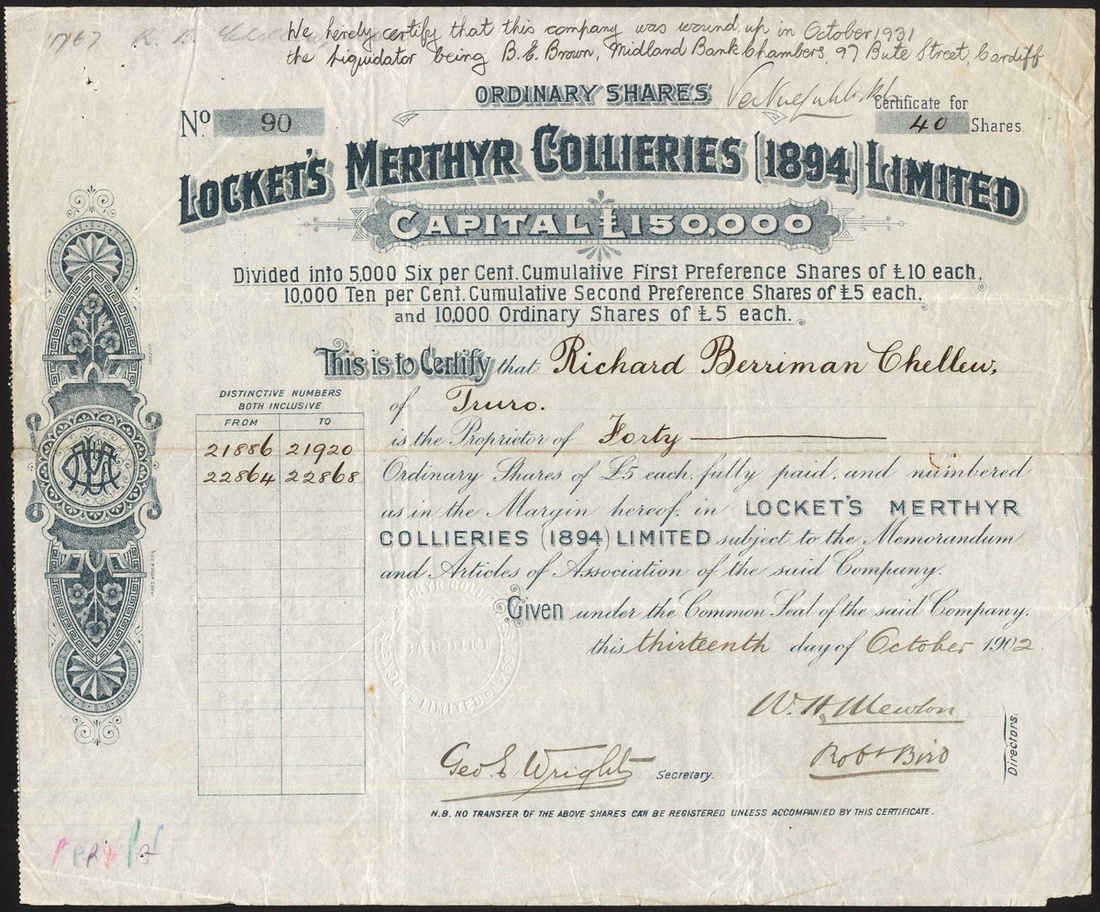 We hereby certify that this company was wound up in October 1931
the Liquidator being B.E. Brown, Midland Bank Chambers, 97 Bute Street, Cardiff
ORDINARY SHARES
Certificate for
No. 90
40 Shares.
LOCKET'S MERTHYR COLLIERIES (1894) LIMITED
CAPITAL £150,000
Divided into 5,000 Six per Cent. Cumulative First Preference Shares of £10 each,
10,000 Ten per Cent. Cumulative Second Preference Shares of £5 each,
and 10,000 Ordinary Shares of £5 each.
This is to Certify that Richard Berriman Chellew,
of Truro.
is the Proprietor of Forty
Ordinary Shares of £5 each, fully paid, and numbered
as in the Margin hereof, in LOCKET'S MERTHYR
COLLIERIES (1894) LIMITED subject to the Memorandum
and Articles of Association of the said Company.
DISTINCTIVE NUMBERS
BOTH INCLUSIVE
FROM TO
21886 21920
22864 22868
Given under the Common Seal of the said Company,
this thirteenth day of October 1902.
W. H. Mewton
Robt Bird
Directors.
Geo. E. Wright Secretary.
N.B. NO TRANSFER OF THE ABOVE SHARES CAN BE REGISTERED UNLESS ACCOMPANIED BY THIS CERTIFICATE.